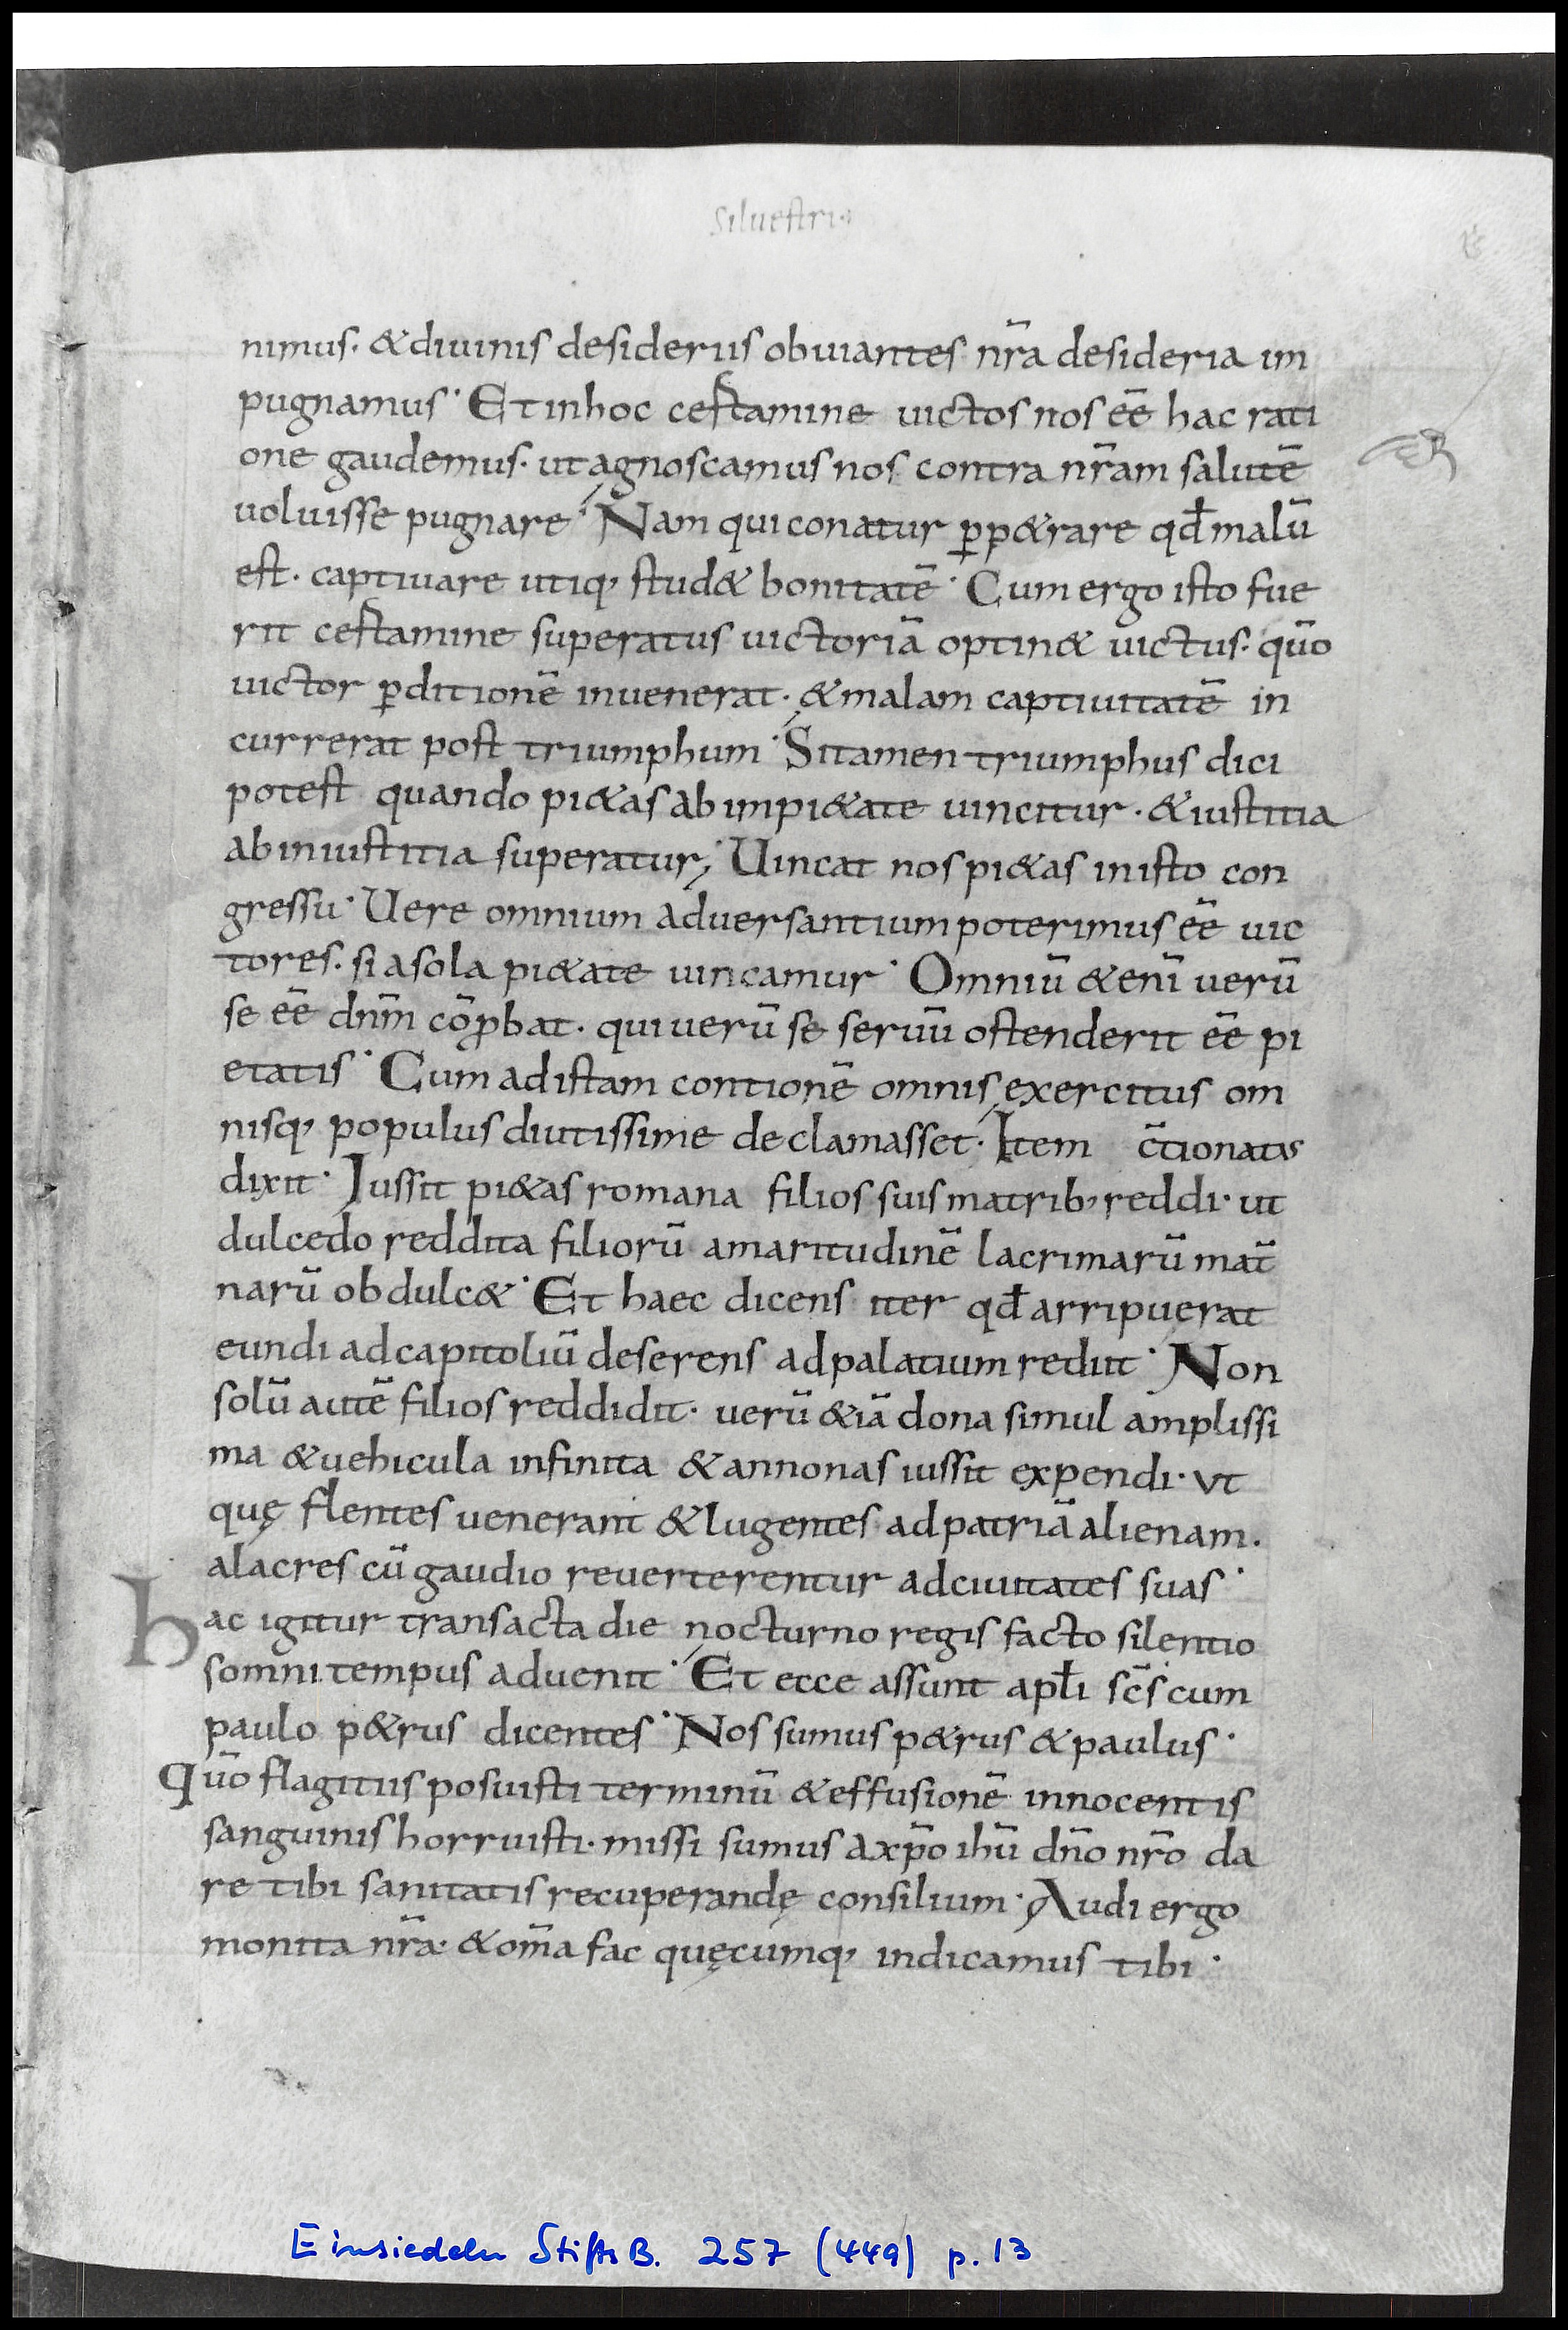 siluestri
nimus. & diuinis desideriis obuiantes nr̃a desideria im
pugnamus· Et in hoc certamine uictos nos eē hac rati
one gaudemus. ut agnoscamus nos contra nr̃am salutē
uoluisse pugnare· Nam qui conatur ꝑp&rare qđ malū
est. captiuare utiq, stud& bonitatē· Cum ergo isto fue
rit certamine superatus uictoriā optin& uictus. quō
uictor ꝑditionē inuenerat. & malam captiuitatē in
currerat post triumphum· Si tamen triumphus dici
potest quando pi&as ab impi&ate uincitur. & iustitia
ab iniustitia superatur· Uincat nos pi&as in isto con
gressu· Uere omnium aduersantium poterimus eē uic
tores. si a sola pi&ate uincamur· Omniū &enī uerū
se eē dnm̄ cōꝓbat. qui uerū se seruū ostenderit eē pi
etatis· Cum ad istam contionē omnis exercitus om
nisq, populus diutissime declamasset· Item c̄tionatus
dixit· Iussit pi&as romana filios suis matrib, reddi· ut
dulcedo reddita filiorū amaritudinē lacrimarū mat̄
narū obdulc&· Et haec dicens iter qđ arripuerat
eundi ad capitoliū deserens ad palatium rediit· Non
solū autē filios reddidit· uerū &iā dona simul amplissi
ma & uehicula infinita & annonas iussit expendi· vt
quę flentes uenerant & lugentes ad patriā alienam.
alacres cū gaudio reuerterentur ad ciuitates suas·
hac igitur transacta die nocturno regis facto silentio
somni tempus aduenit· Et ecce assunt apłi sc̄s cum
paulo p&rus dicentes· Nos sumus p&rus & paulus·
Quō flagitiis posuisti terminū & effusionē innocentis
sanguinis horruisti. missi sumus a xp̄o ihū dn̄o nr̄o da
re tibi sanitatis recuperandę consilium· Audi ergo
monita nr̄a· & om̄a fac quęcumq, indicamus tibi·
Einsiedeln Stifts B. 257 (449) p. 13